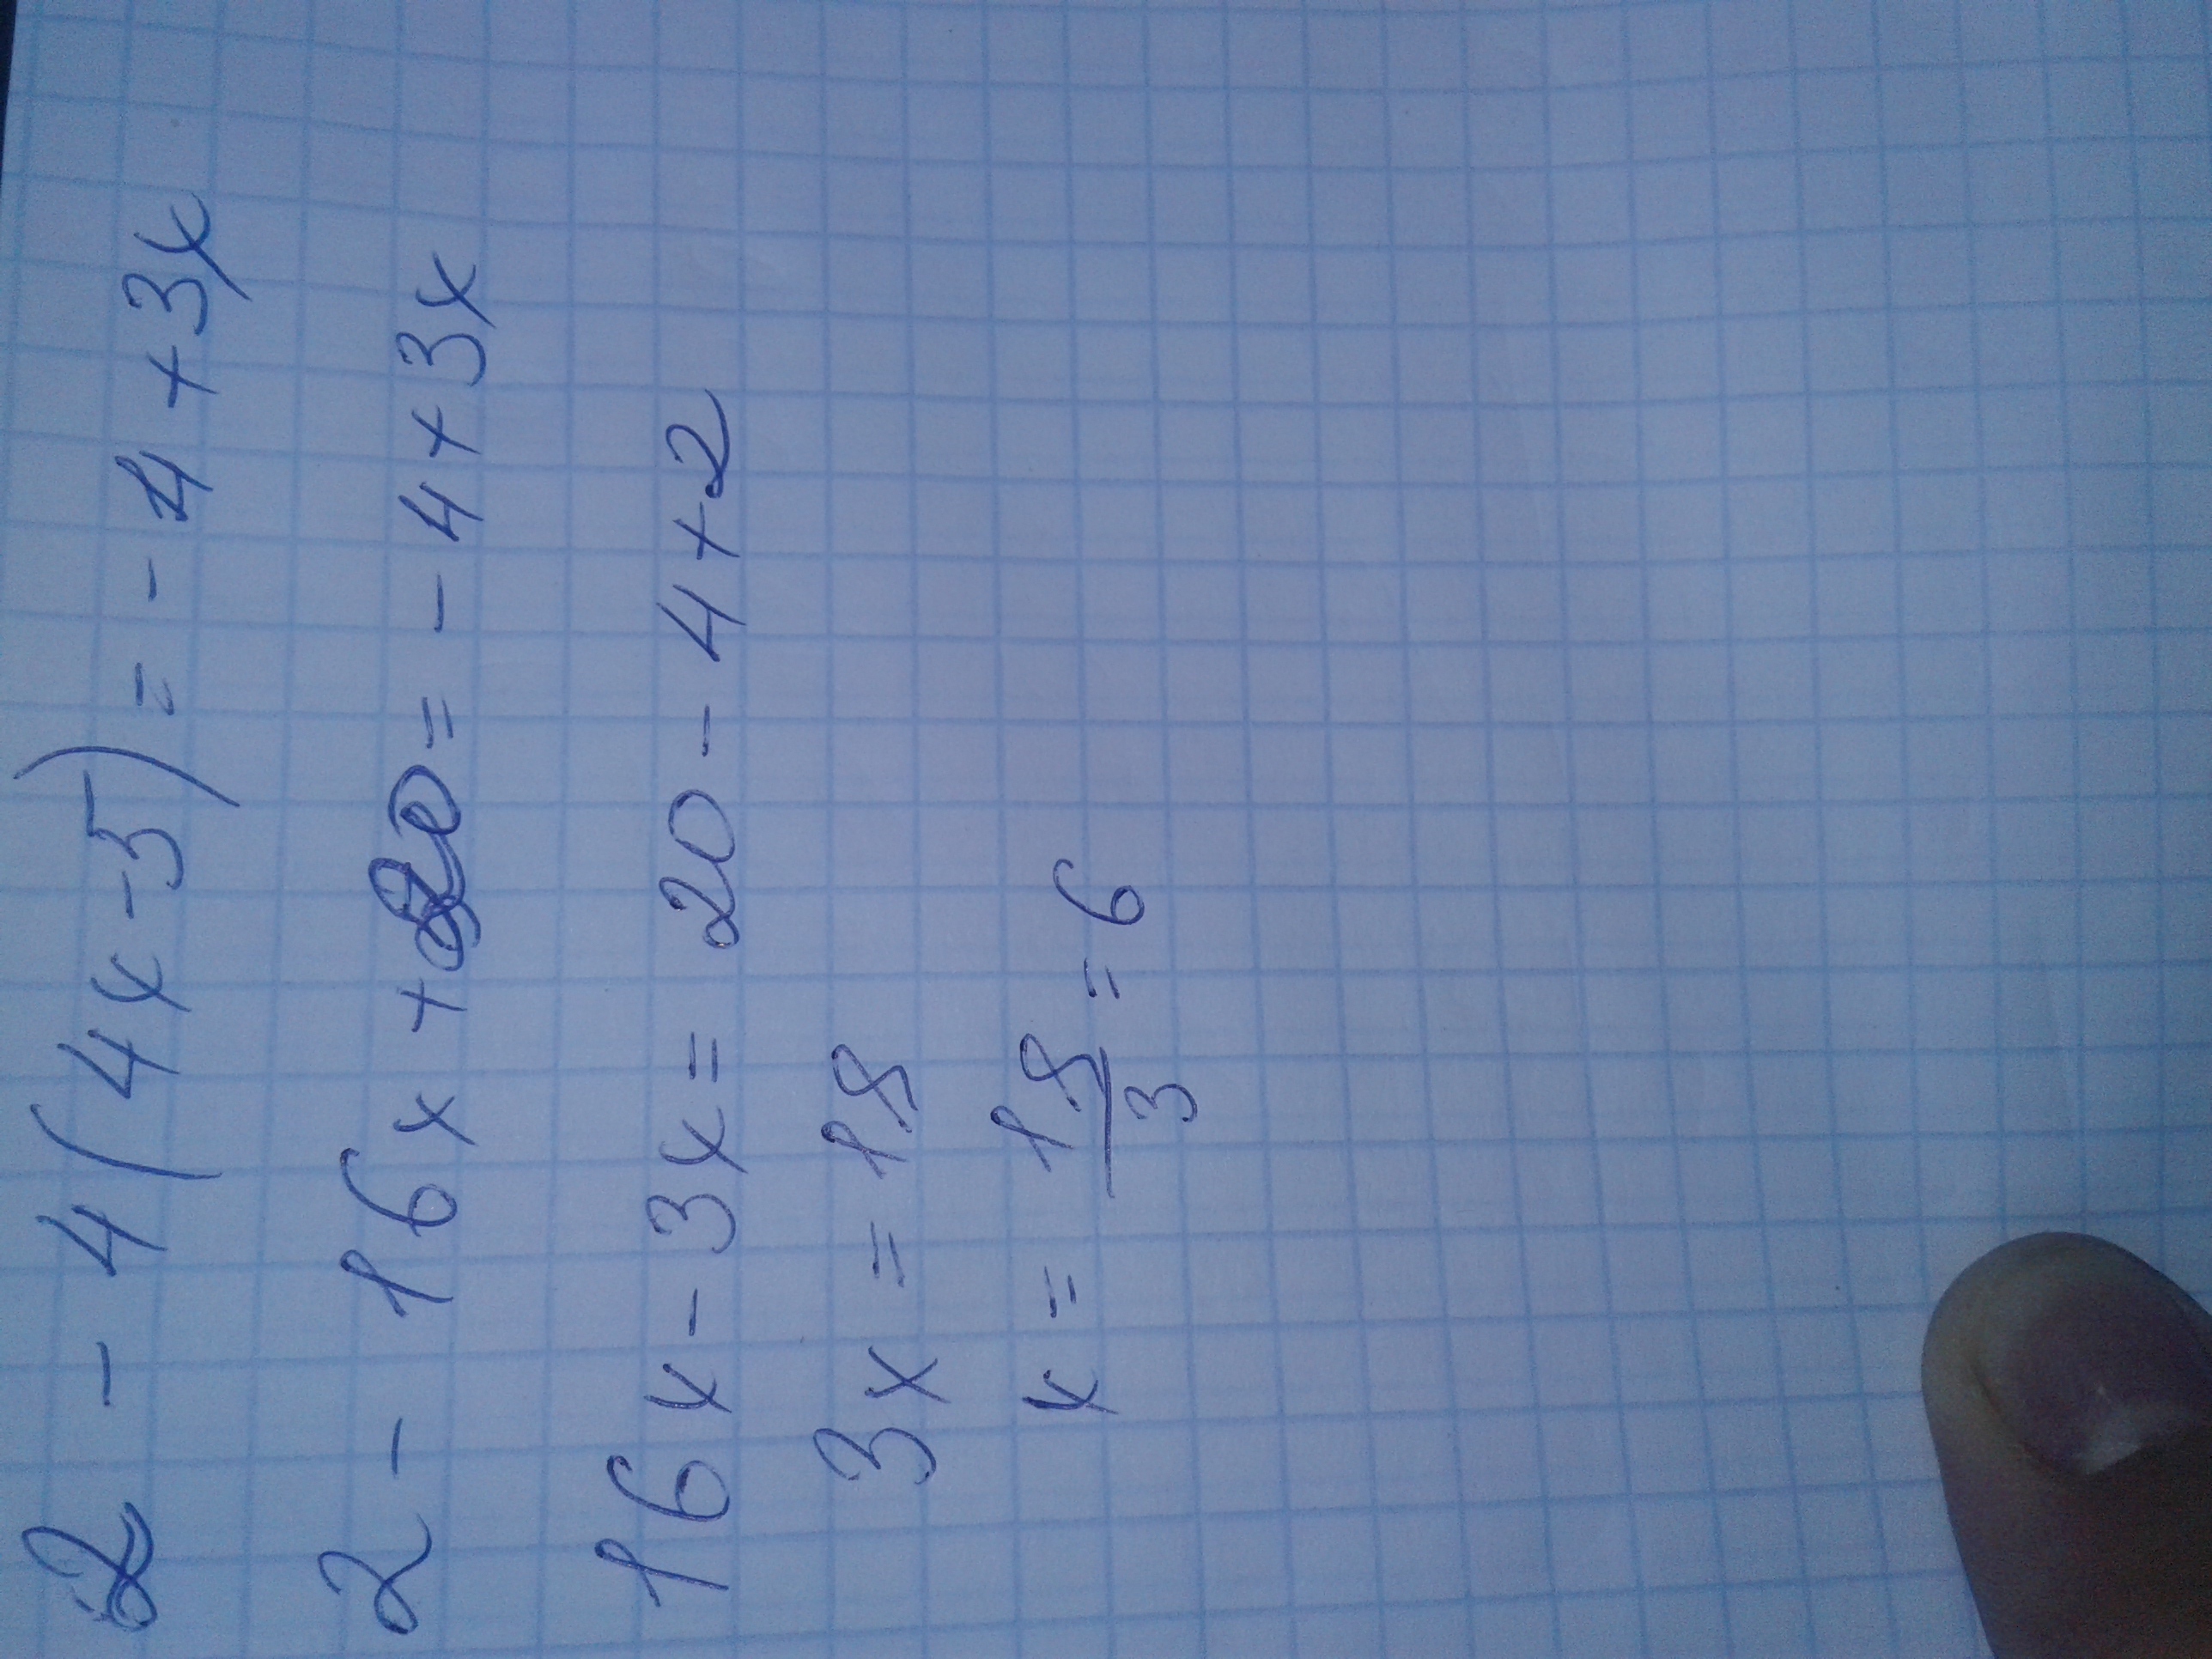 2 - 4(4x-5) = -4+3x
2 - 16x+20= -4+3x
16x-3x= 20-4+2
3x = 18
x = 18/3 = 6